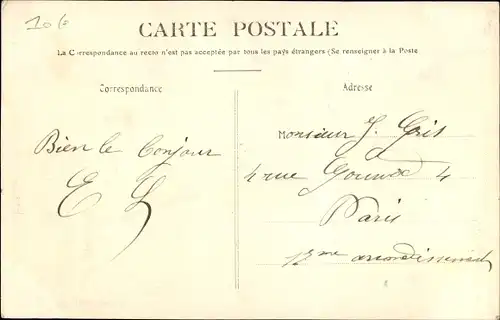 106
CARTE POSTALE
La Correspondance au recto n'est pas acceptée par tous les pays étrangers (Se renseigner à la Poste
Correspondance
Adresse
Bien le bonjour
E L
Monsieur J. Gris
4 rue 4
Paris
12me arrondissement